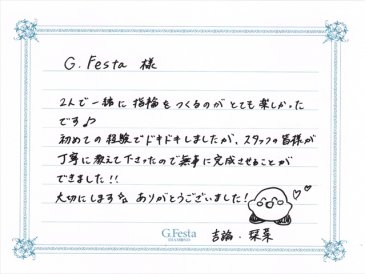 G.Festa 様
2人で一緒に指輪をつくるのがとても楽しかった
です♪
初めての経験でドキドキしましたが、スタッフの皆様が
丁寧に教えて下さったので無事に完成させることが
できました!!
大切にします ありがとうございました!
G.Festa
DIAMOND
吉論・栞菜